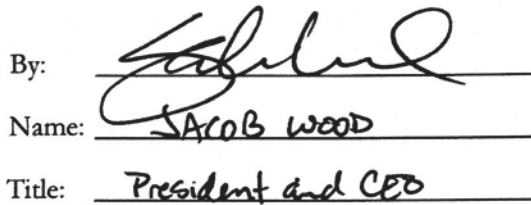 By:
Name: JACOB WOOD
Title: President and CEO